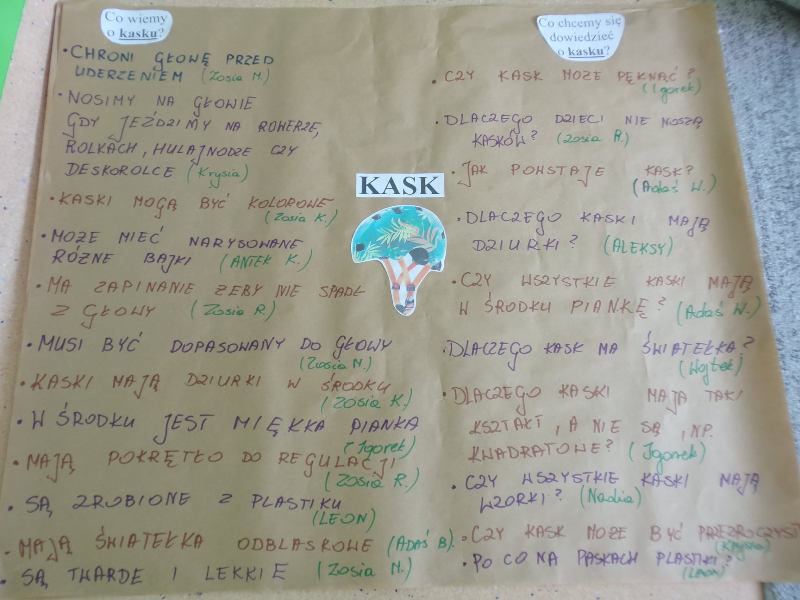 Co wiemy
o kasku?
• CHRONI GŁOWĘ PRZED
UDERZENIEM (Zosia M.)
• NOSIMY NA GŁOWIE
GDY JEŹDZIMY NA ROWERZE,
ROLKACH, HULAJNODZE CZY
DESKOROLCE (Krysia)
• KASKI MOGĄ BYĆ KOLOROWE
(Zosia K.)
• MOŻE MIEĆ NARYSOWANE
RÓŻNE BAJKI (ANTEK K.)
• MA ZAPINANIE ŻEBY NIE SPADŁ
Z GŁOWY (Zosia R.)
• MUSI BYĆ DOPASOWANY DO GŁOWY
(Zosia M.)
• KASKI MAJĄ DZIURKI W ŚRODKU
(Zosia K.)
• W ŚRODKU JEST MIĘKKA PIANKA
(Igorek)
• MAJĄ POKRĘTŁO DO REGULACJI
(Zosia R.)
• SĄ ZROBIONE Z PLASTIKU
(LEON)
• MAJĄ ŚWIATEŁKA ODBLASKOWE (ADAŚ B.)
• SĄ TWARDE I LEKKIE (Zosia M.)
KASK
Co chcemy się
dowiedzieć
o kasku?
• CZY KASK MOŻE PĘKNĄĆ?
(Igorek)
• DLACZEGO DZIECI NIE NOSZĄ
KASKÓW? (Zosia R.)
• JAK POWSTAJE KASK?
(Adaś W.)
• DLACZEGO KASKI MAJĄ
DZIURKI? (ALEKSY)
• CZY WSZYSTKIE KASKI MAJĄ
W ŚRODKU PIANKĘ? (Adaś W.)
• DLACZEGO KASK MA ŚWIATEŁKA?
(Wojtek)
• DLACZEGO KASKI MAJĄ TAKI
KSZTAŁT, A NIE SĄ, NP.
KWADRATOWE? (Igorek)
• CZY WSZYSTKIE KASKI MAJĄ
WZORKI? (Nadia)
• CZY KASK MOŻE BYĆ PRZEZROCZYST
(Krysia)
• PO CO NA PASKACH PLASTIKI?
(LEON)